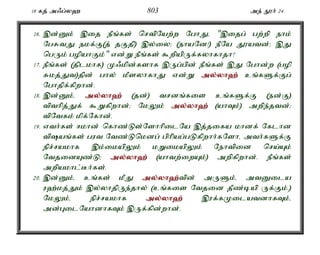 18 கத் அஃப்லஹ 803 அந் நூர் 24
16. இன்னும் இதை நீங்கள் செவியேற்ற போது, "இதைப் பற்றி நாம்
பேசுவது நமக்கு(த் தகுதி) இல்லை; (நாயனே!) நீயே தூயவன்; இது
பெரும் பழியாகும்" என்று நீங்கள் கூறியிருக்கலாகாதா?
17. நீங்கள் (திடமாக) முஃமின்களாக இருப்பின் நீங்கள் இது போன்ற (பழி
சுமத்துவ)தின் பால் மீளலாகாது என்று அல்லாஹ் உங்களுக்குப்
போதிக்கிறான்.
18. இன்னும், அல்லாஹ் (தன்) வசனங்களை உங்களுக்கு (நன்கு)
விவரித்துக் கூறுகிறான்; மேலும் அல்லாஹ் (யாவும்) அறிந்தவன்;
விவேகம் மிக்கோன்.
19. எவர்கள் ஈமான் கொண்டுள்ளோரிடையே இத்தகைய மானக் கேடான
விஷயங்கள் பரவ வேண்டுமெனப் பிரியப்படுகிறார்களோ, அவர்களுக்கு
நிச்சயமாக இம்மையிலும் மறுமையிலும் நோவினை செய்யும்
வேதனையுண்டு; அல்லாஹ் (யாவற்றையும்) அறிகிறான். நீங்கள்
அறியமாட்டீர்கள்.
20. இன்னும், உங்கள் மீது அல்லாஹ்வின் அருளும், அவனுடைய
ரஹ்மத்தும் இல்லாதிருந்தால் (உங்களை வேதனை தீண்டியி ருக்கும்.)
மேலும், நிச்சயமாக அல்லாஹ் இரக்கமுடையவனாகவும்,
அன்புடையோனாகவும் இருக்கின்றான்.